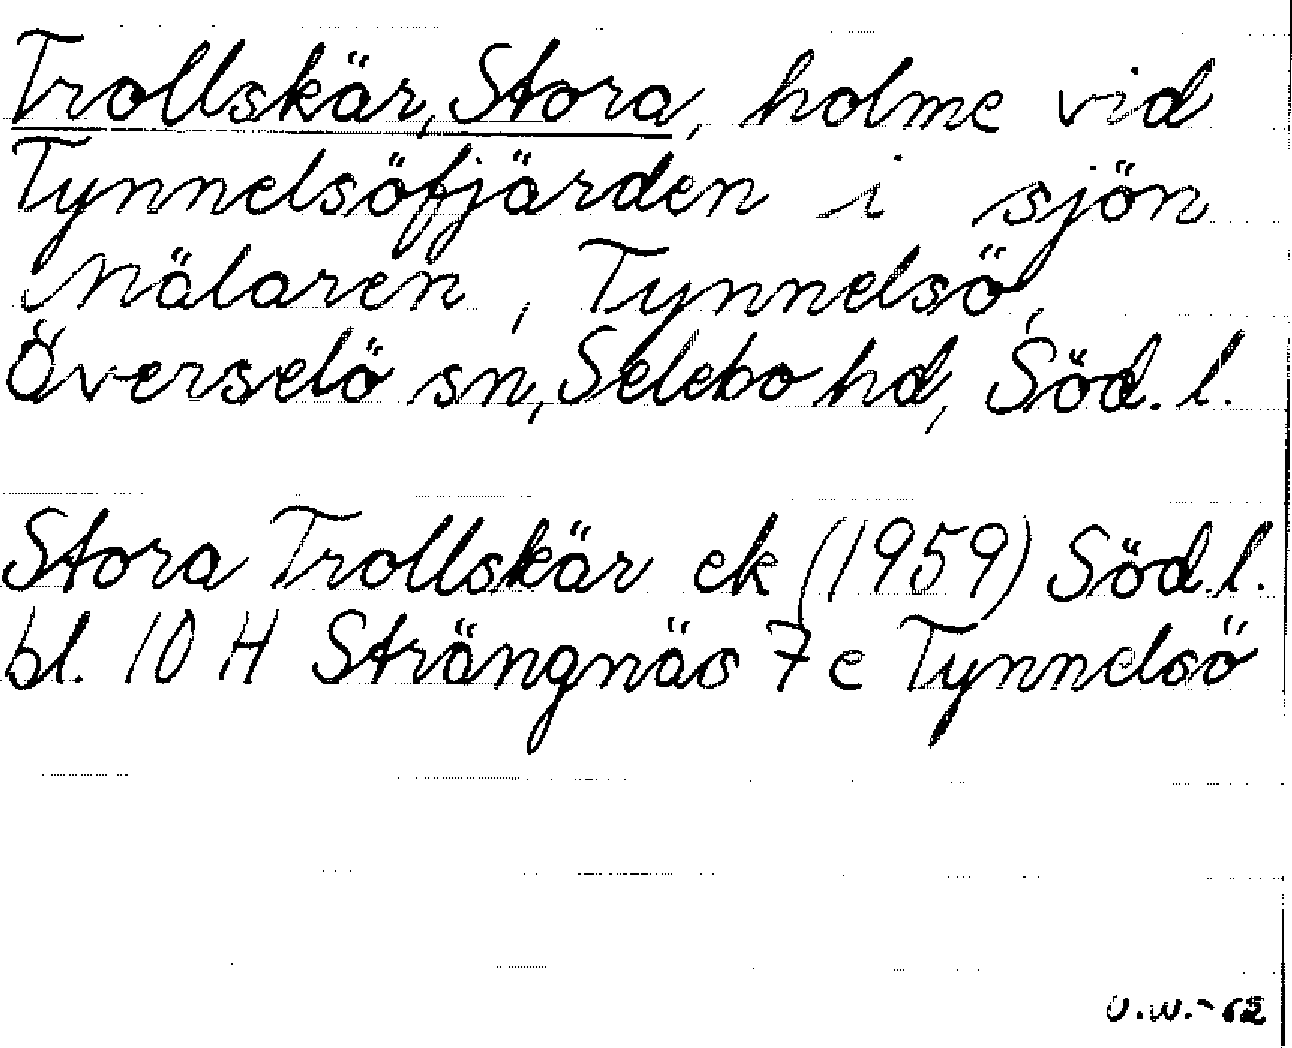 Trollskär, Stora, holme vid
Tynnelsöfjärden i sjön
Mälaren, Tynnelsö,
Överselö sn, Selebo hd, Söd. l.
Stora Trollskär ek (1959) Söd. l.
bl. 10 H Strängnäs 7 e Tynnelsö
U.W.-62